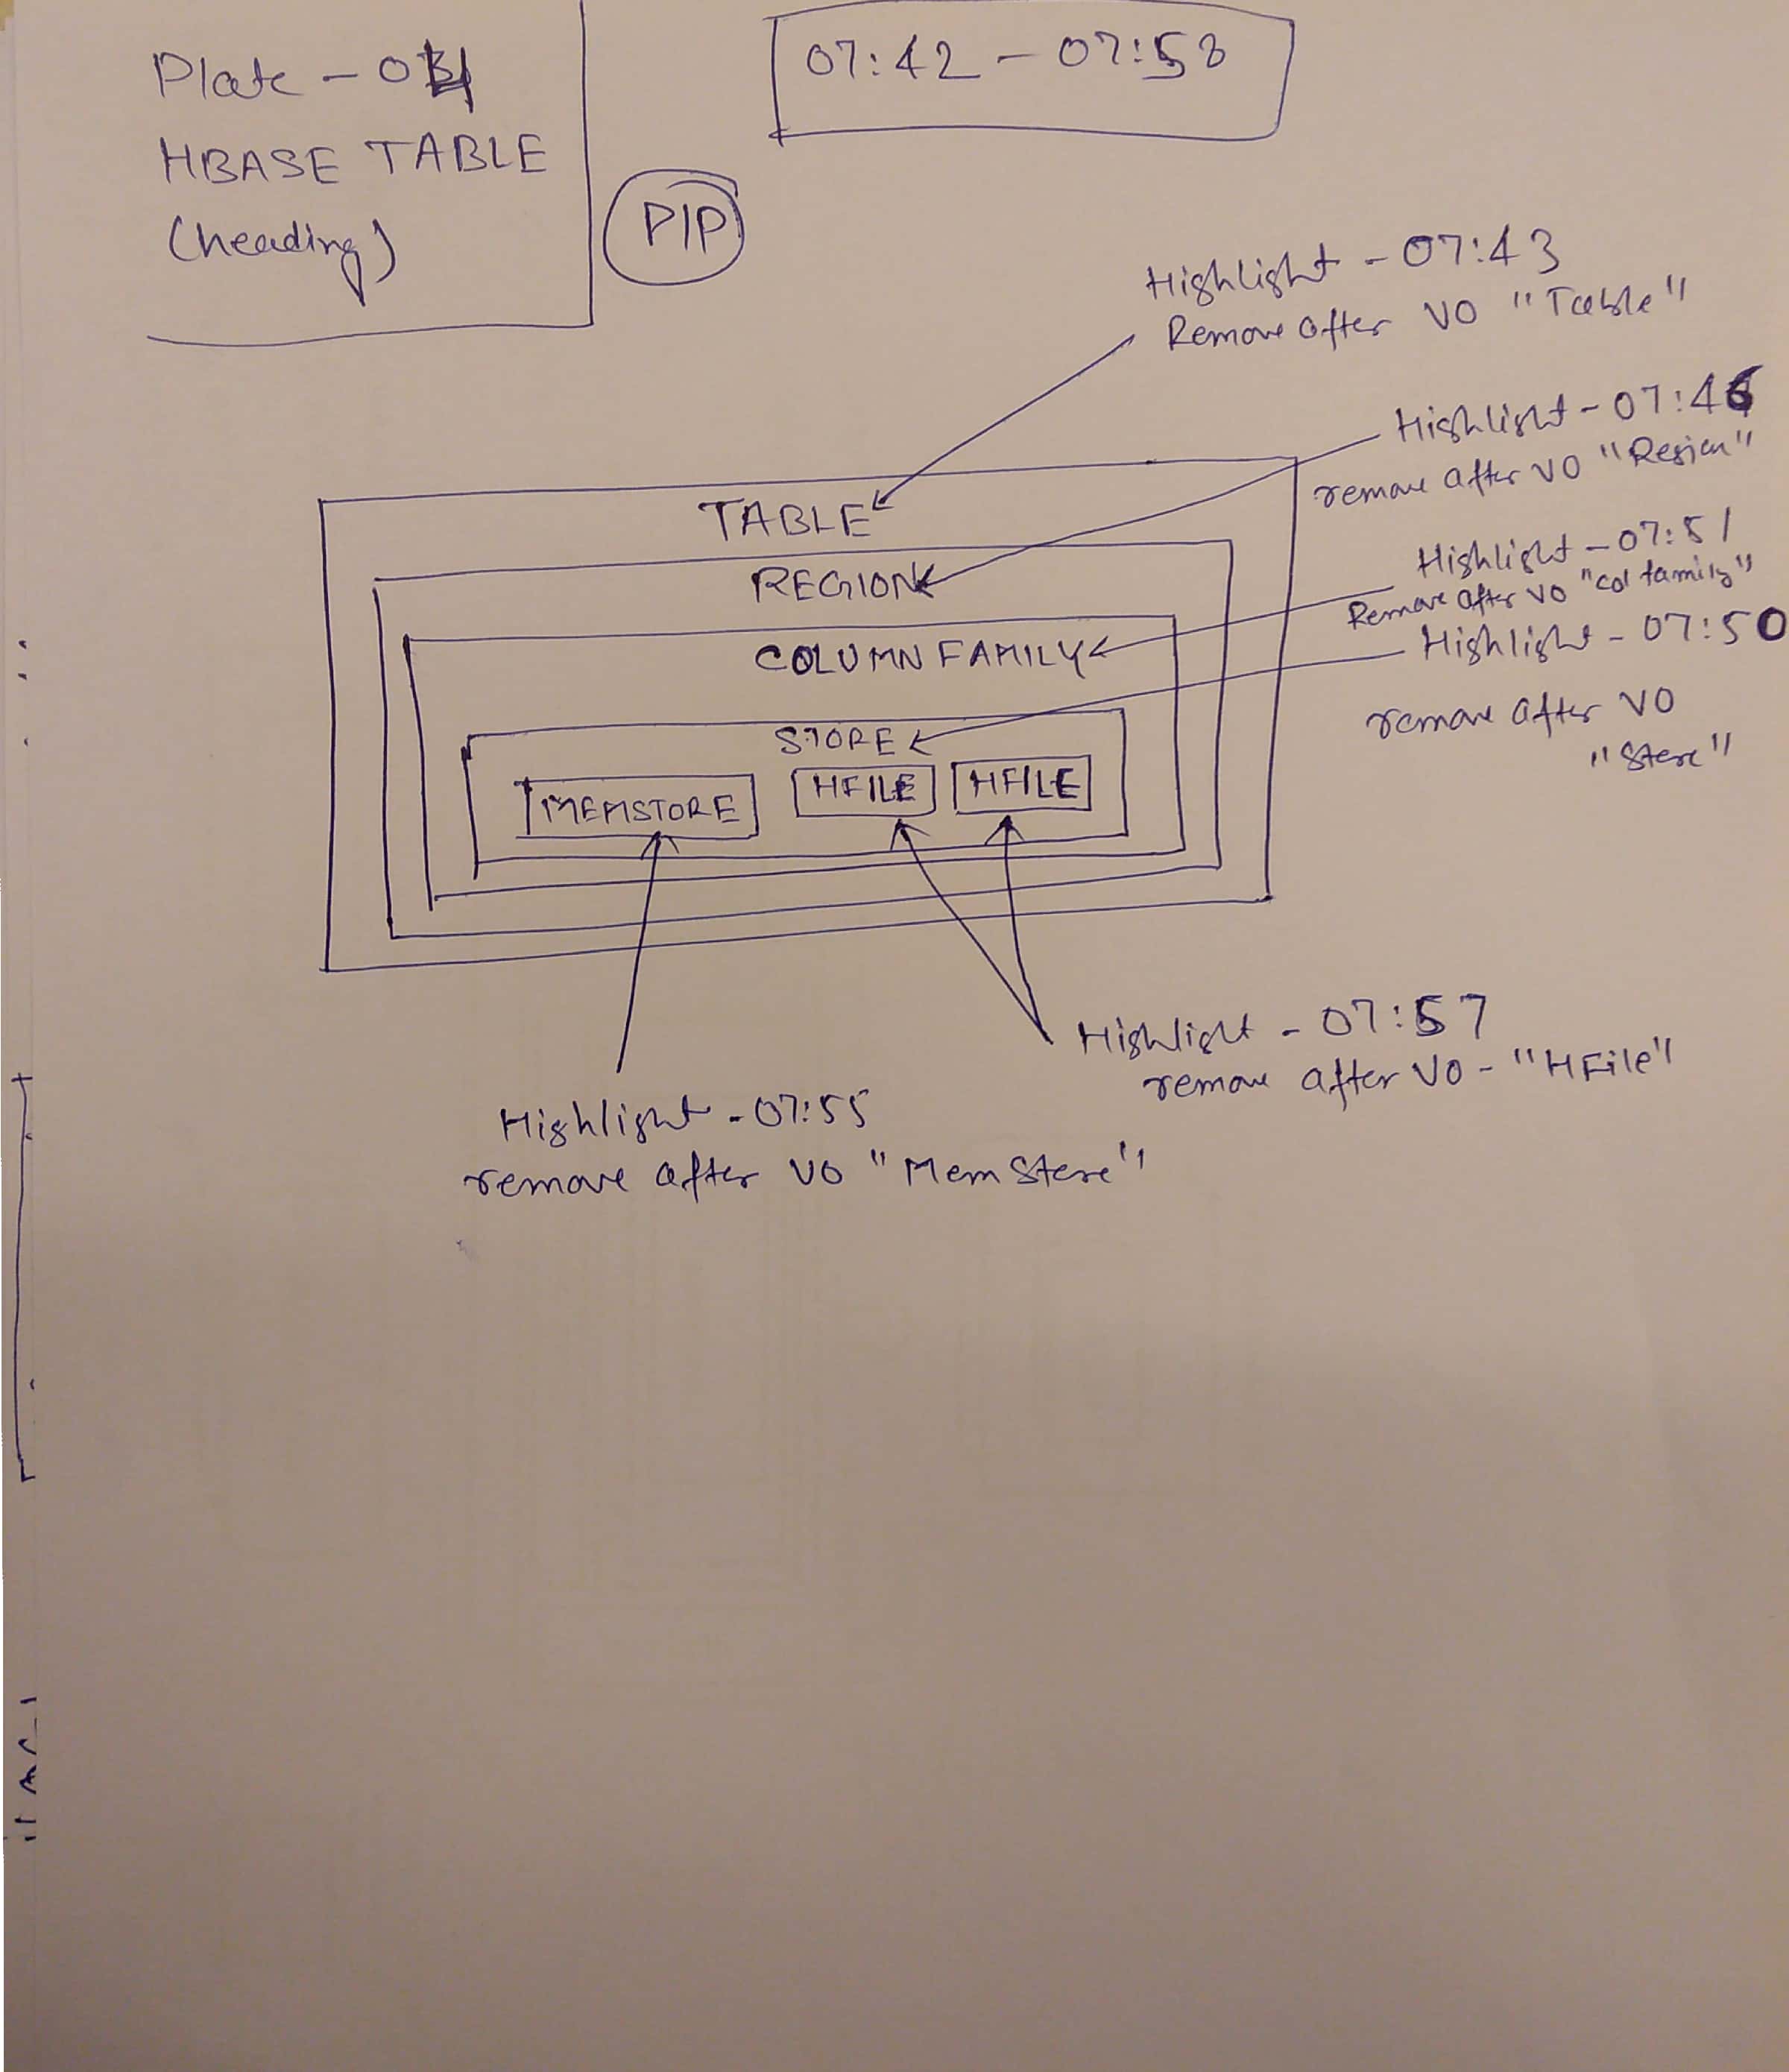 Plate - 04
HBASE TABLE
(heading)
07:42 - 07:58
PIP
Highlight - 07:43
Remove after VO "Table"
Highlight - 07:46
remove after VO "Region"
Highlight - 07:51
Remove after VO "col family"
Highlight - 07:50
remove after VO
"Store"
TABLE
REGION
COLUMN FAMILY
STORE
MEMSTORE HFILE HFILE
Highlight - 07:57
remove after VO - "HFile"
Highlight - 07:55
remove after VO "MemStore"